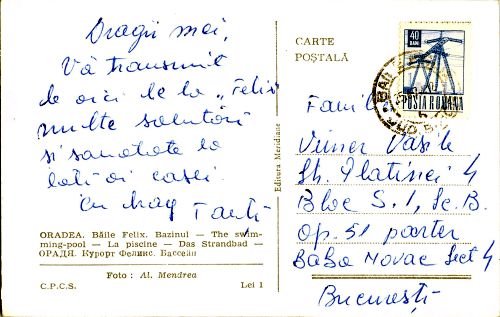 Dragii mei,
Vă transmit
de aici de la „Felix"
multe salutări
și sanatate la
toți ai casei
cu drag Tanți
ORADEA. Băile Felix. Bazinul — The swim-
ming-pool — La piscine — Das Strandbad —
ОРАДЯ. Курорт Феликс. Бассейн
Foto : Al. Mendrea
C.P.C.S. Lei 1
Editura Meridiane
CARTE
POȘTALĂ
40
BANI
POSTA ROMANA
Famil
Vasile
Str. Platinei 4
Bloc S.1, Sc.B.
ap. 51 parter
Baba Novac Sect 4
București